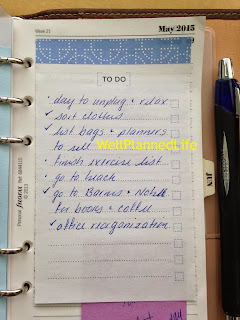 Week 21
May 2015
TO DO
• day to unplug & relax
✓ sort clothes
✓ list bags & planners
to sell
• finish exercise list
• go to beach
✓ go to Barnes & Noble
for books & coffee
✓ office reorganization
WellPlannedLife
JUN